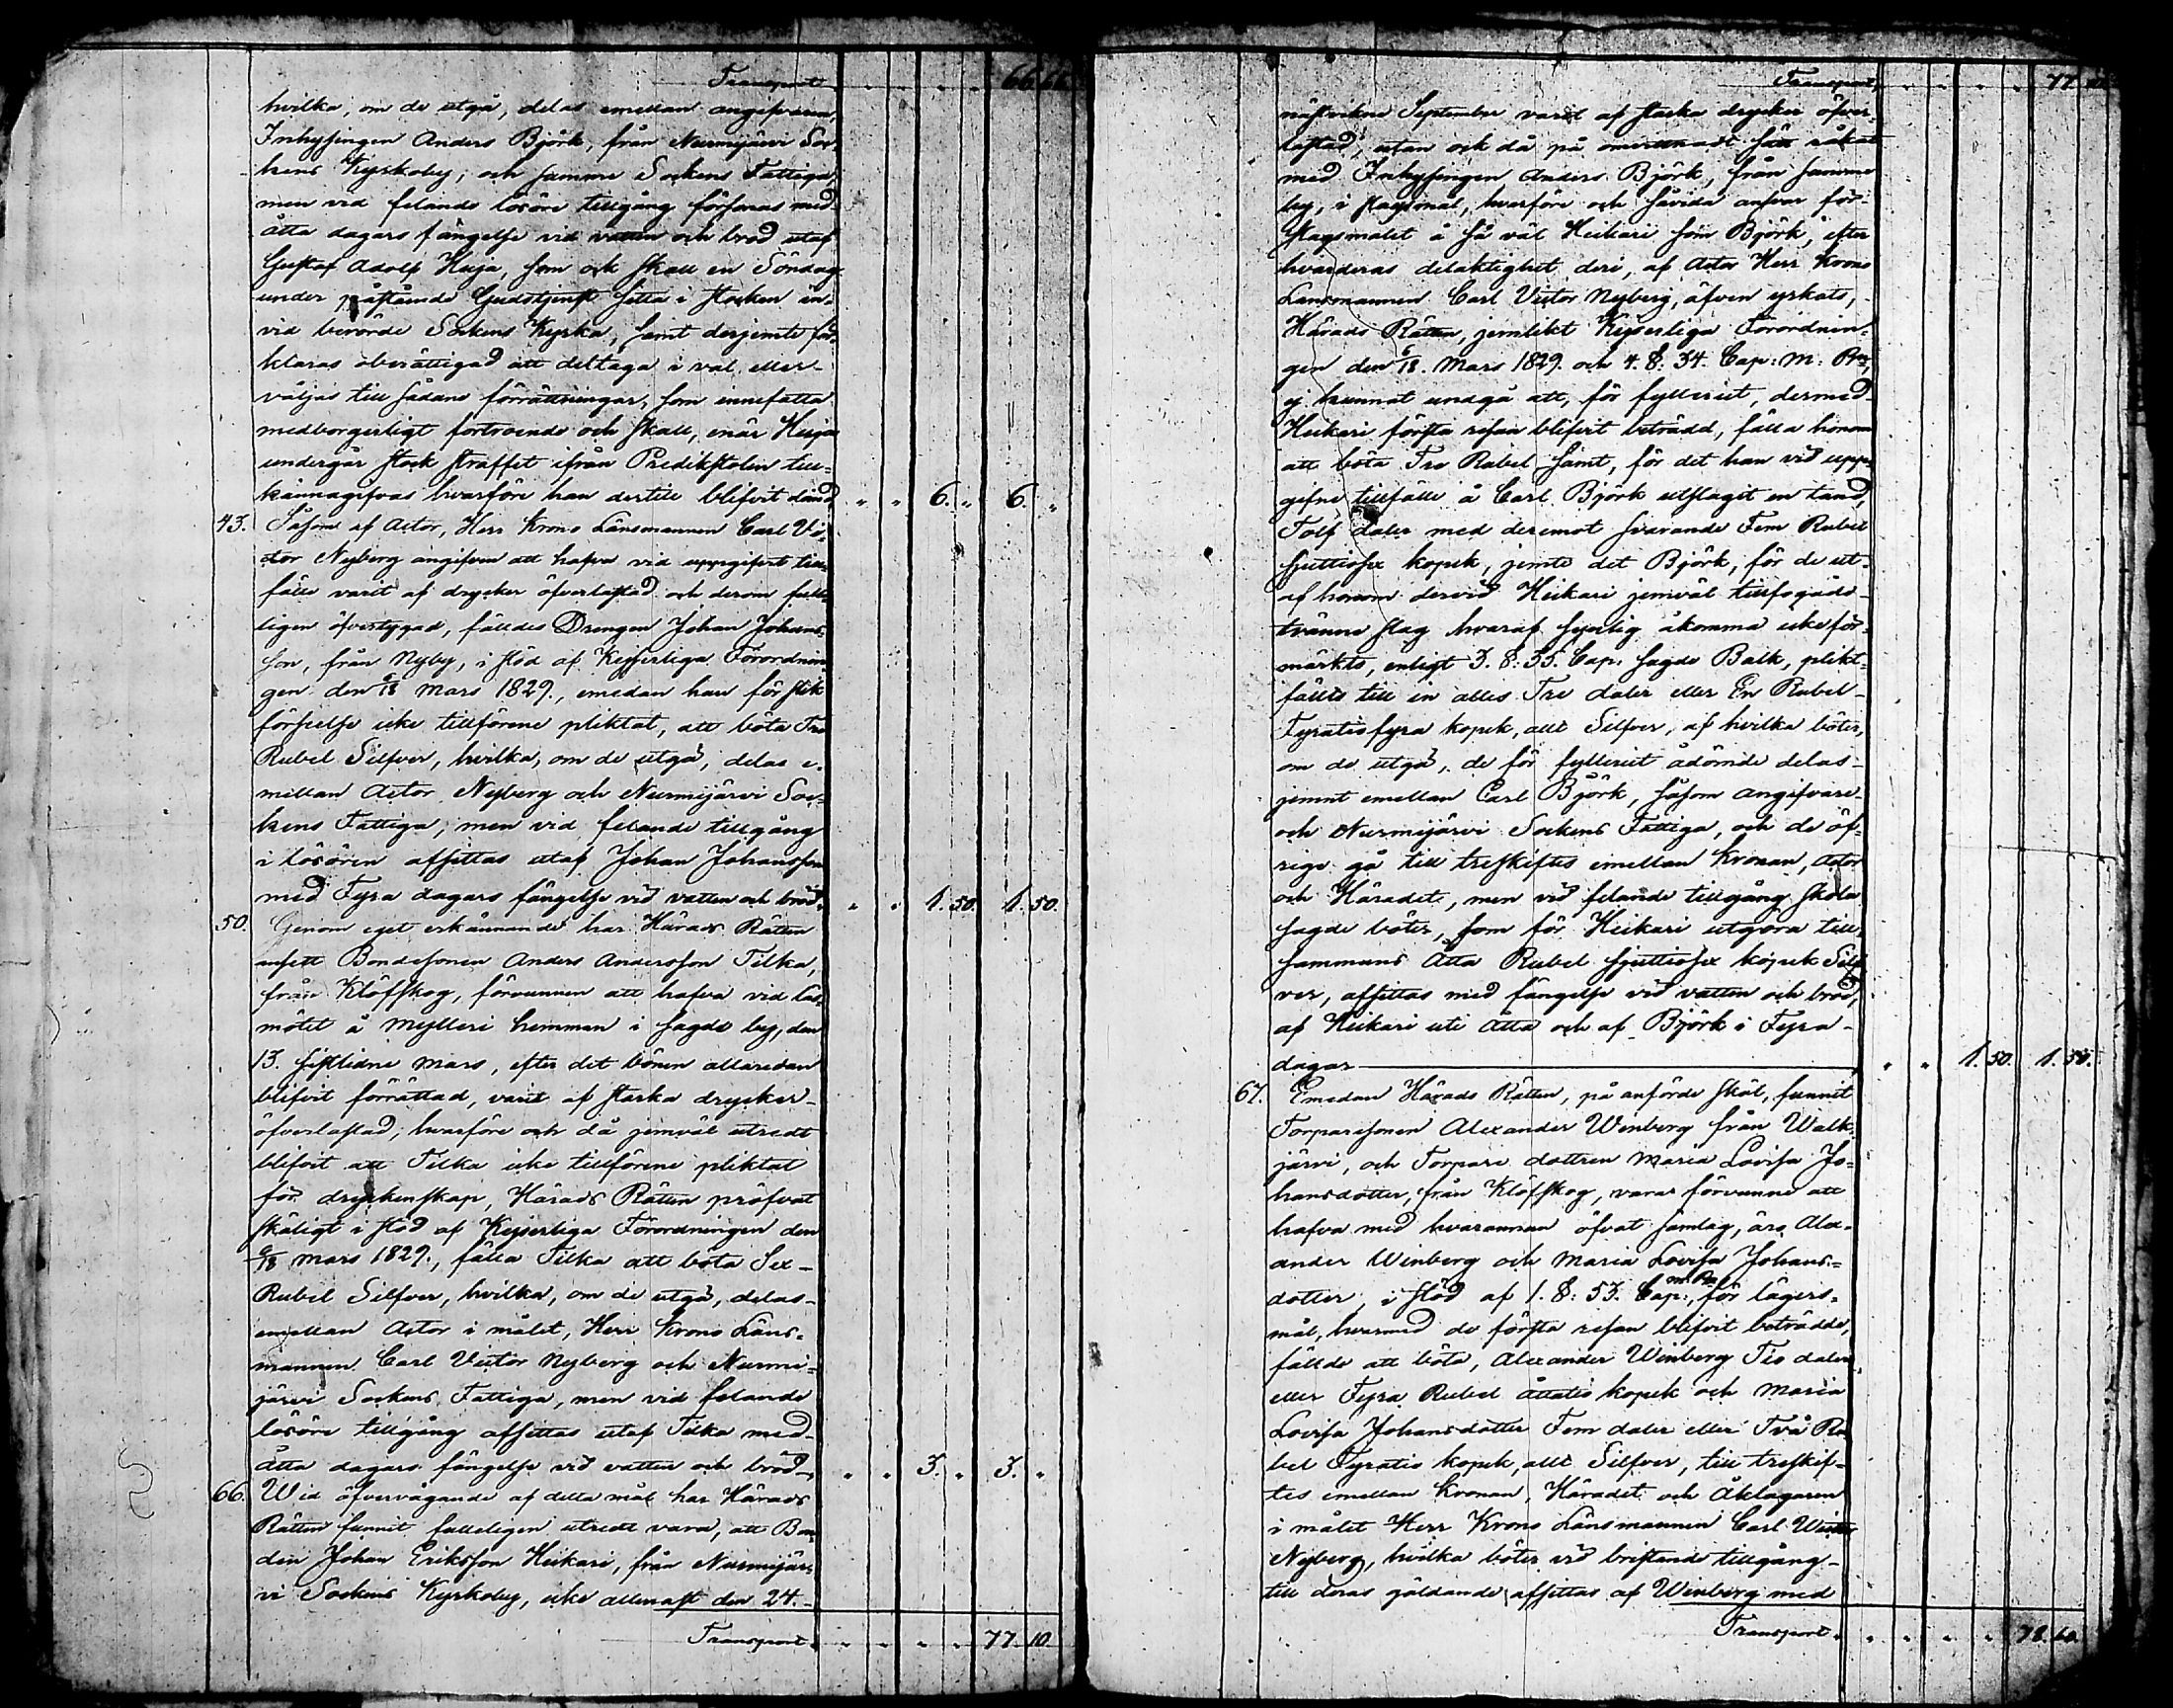 Transport 66 66.
hvilka, om de utgå, delas emellan angifvaren,
Inhysingen Anders Björk, från Nurmijärvi Soc-
kens Kyrkoby, och samme Sockens Fattiga,
men vid felande lösöre tillgång försonas med
åtta dagars fängelse vid vatten och bröd utaf
Gustaf Adolf Huja, som ock skall en Söndag
under påstående Gudstjenst sitta i stocken in-
vid berörde Sockens Kyrka, samt derjemte för-
klaras oberättigad att deltaga i val eller
väljas till sådane förrättningar, som innefatta
medborgerligt förtroende och skall, enär Huja
undergår stock straffet ifrån Predikstolen till-
kännagifvas hvarföre han dertill blifvit dömd, " " 6. " 6. "
43. Såsom af Actor, Herr Krono Länsmannen Carl Vic-
tor Nyberg angifven att hafva vid uppgifvet till-
fälle varit af drycker öfverlastad och derom full-
ligen öfvertygad, fälldes Drengen Johan Johans-
son, från Nyby, i stöd af Kejserliga Förordnin-
gen den 6/18 Mars 1829., emedan han för slik
förseelse icke tillförene pliktat, att böta Tre
Rubel Silfver, hvilka, om de utgå, delas e-
mellan Actor Nyberg och Nurmijärvi Soc-
kens Fattiga, men vid felande tillgång
i lösören afsittas utaf Johan Johansson
med Fyra dagars fängelse vid vatten och bröd, " " 1. 50. 1. 50.
50. Genom eget erkännande har Härads Rätten
ansett Bondesonen Anders Andersson Tilka,
från Klöfskog, förvunnen att hafva vid läs-
mötet å Mylleri hemman i sagde by, den
13. sistlidne Mars, efter det bönen allaredan
blifvit förrättad, varit af starka drycker
öfverlastad; hvarföre och då jemväl utredt
blifvit att Tilka icke tillförene pliktat
för dryckenskap, Härads Rätten pröfvat
skäligt i stöd af Kejserliga Förordningen den
6/18 Mars 1829., fälla Tilka att böta Sex
Rubel Silfver, hvilka, om de utgå, delas
emellan Actor i målet, Herr Krono Läns-
mannen Carl Victor Nyberg och Nurmi-
järvi Sockens Fattiga, men vid felande
lösöre tillgång afsittas utaf Tilka med
åtta dagars fängelse vid vatten och bröd, " " 3. " 3. "
66. Wid öfvervägande af detta mål har Härads
Rätten funnit fulleligen utredt vara, att Bon-
den Johan Eriksson Heikari, från Nurmijär-
vi Sockens Kyrkoby, icke allenast den 24.
Transport. " " " " 77. 10.
Transport, 77
nästvikne September varit af starka drycker öfver-
lastad, utan ock då på omvittnadt sätt råkat
med Inhysingen Anders Björk, från samme
by, i slagsmål, hvarföre och såvida ansvar för
slagsmålet å så väl Heikari som Björk, efter
hvarderas delaktighet deri, af Actor Herr Krono
Länsmannen Carl Victor Nyberg, äfven yrkats,
Härads Rätten, jemlikt Kejserliga Förordnin-
gen den 6/18. Mars 1829. och 4. §: 34. Cap: M: B,
ej kunnat undgå att, för fylleriet, dermed
Heikari första resan blifvit beträdd, fälla honom
att böta Tre Rubel samt, för det han vid upp-
gifne tillfälle å Carl Björk utslagit en tand,
Tolf daler med deremot svarande Fem Rubel
sjuttiosex kopek, jemte det Björk, för de ut-
af honom dervid Heikari jemväl tillfogade
tvänne slag hvaraf synlig åkomma icke för-
märkts, enligt 3. §: 35. Cap. sagde Balk, plikt-
fälles till en alles Tre daler eller En Rubel
Fyratiofyra kopek, allt Silfver, af hvilka böter,
om de utgå, de för fylleriet ådömde delas
jemnt emellan Carl Björk, såsom angifvare
och Nurmijärvi Sockens Fattiga, och de öf-
rige gå till treskiftes emellan Kronan, Actor
och Häradet, men vid felande tillgång skola
sagde böter, som för Heikari utgöra till-
sammans Åtta Rubel sjuttiosex kopek Silf-
ver, afsittas med fängelse vid vatten och bröd,
af Heikari uti åtta och af Björk i Fyra
dagar " " 1. 50. 1. 50.
67. Emedan Härads Rätten, på anförde skäl, funnit
Torparesonen Alexander Winberg från Walk-
järvi, och Torpare dottren Maria Lovisa Jo-
hansdotter, från Klöfskog, varar förvunne att
hafva med hvarannan öfvat samlag, äro Alex-
ander Winberg och Maria Lovisa Johans-
dotter, i stöd af 1. §: 53. Cap: M. B. för lägers-
mål, hvarmed de första resan blifvit beträdde,
fällde att böta, Alexander Winberg Tio daler
eller Fyra Rubel åttatio kopek och Maria
Lovisa Johansdotter Fem daler eller Två Ru-
bel Fyratio kopek, allt Silfver, till treskif-
tes emellan Kronan, Häradet och Åklagaren
i målet Herr Krono Länsmannen Carl Victor
Nyberg, hvilka böter vid bristande tillgång
till deras gäldande afsittas af Winberg med
Transport. " " " " 78. 60.